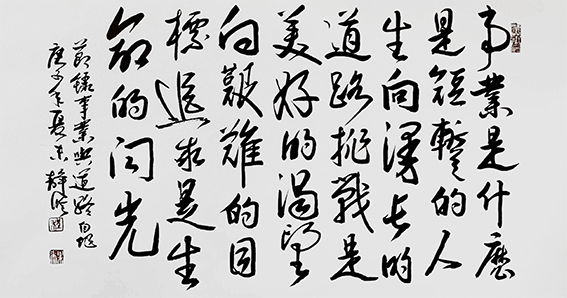 事業是什麽
是短暫的人
生向漫長的
道路挑戰是
美好的渴望
向艱難的目
標追求是生
命的闪光
節錄事業與道路
庚子年夏末静